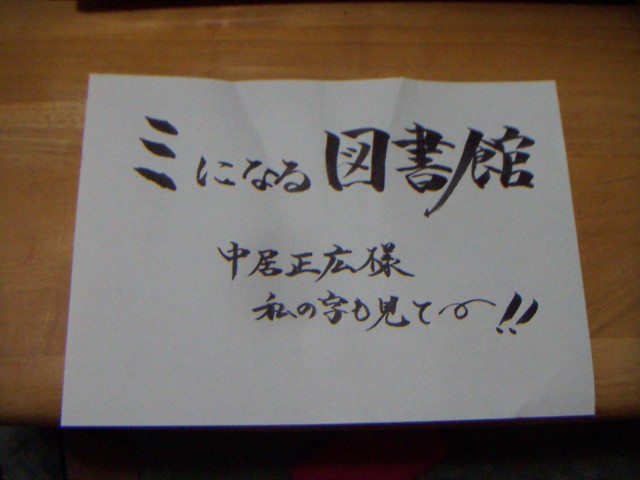 ミになる図書館
中居正広様
私の字も見て〜!!